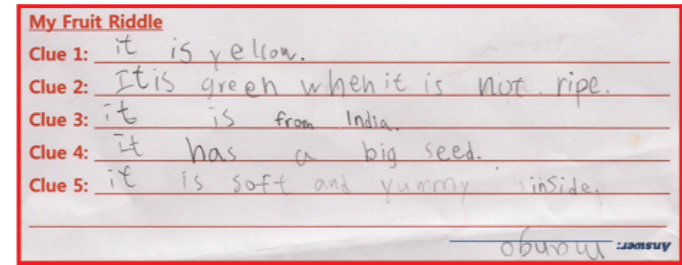 My Fruit Riddle
Clue 1: it is yellow.
Clue 2: It is green when it is not ripe.
Clue 3: it is from India.
Clue 4: It has a big seed.
Clue 5: it is soft and yummy inside.
Answer: mango